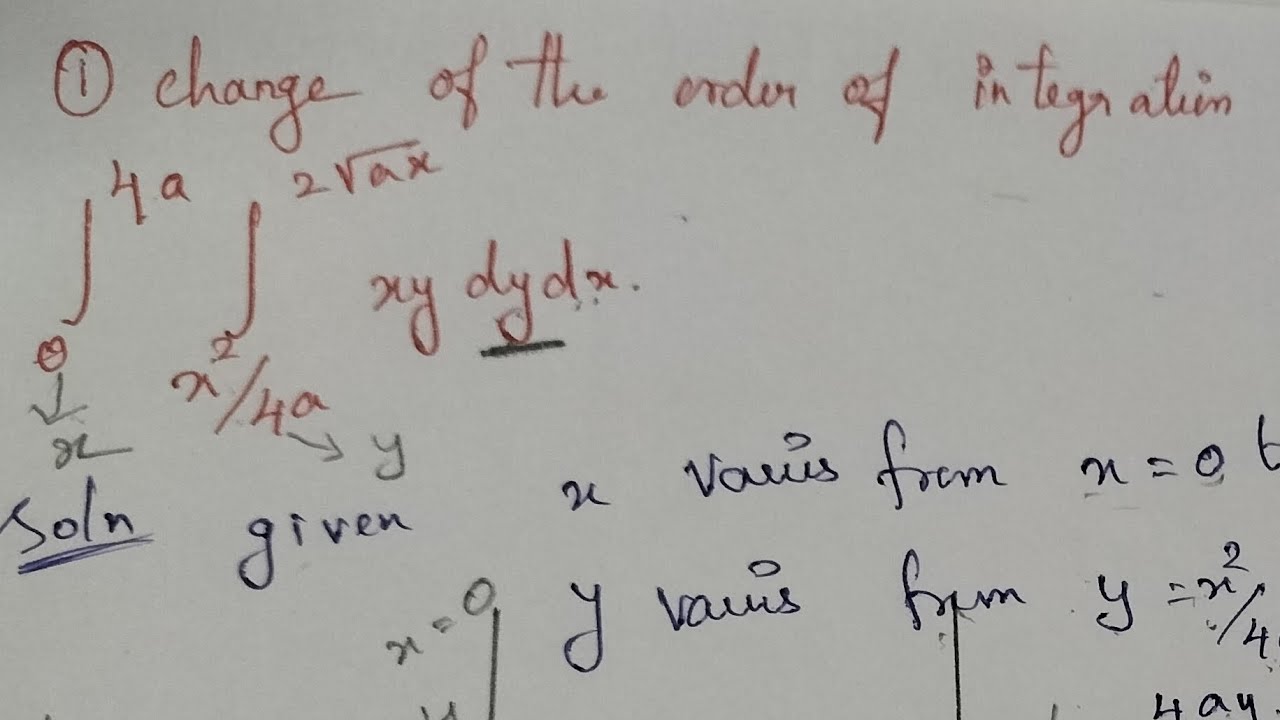 ① change of the order of integration
∫₀^{4a} ∫_{x²/4a}^{2√ax} xy dy dx.
x y
Soln given x varis from x = 0
x = 0 y varis from y = x²/4
4ay